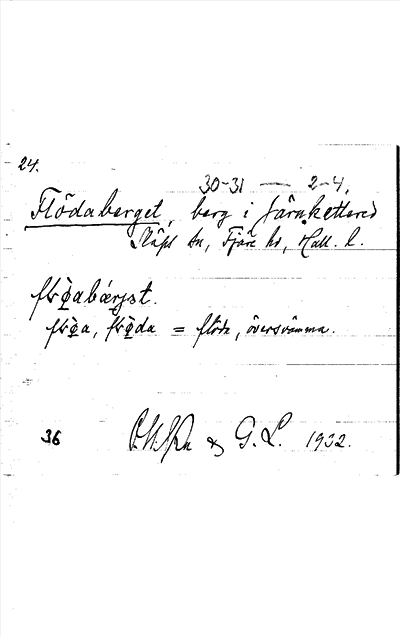 24.
30-31 — 2-4.
Flödaberget, berg i Järnkettered
Släps sn, Fjäre hd, Hall. l.
flö̝abærjət.
flö̝a, flö̝da = flöda, översvämma.
36 & G. L. 1932.